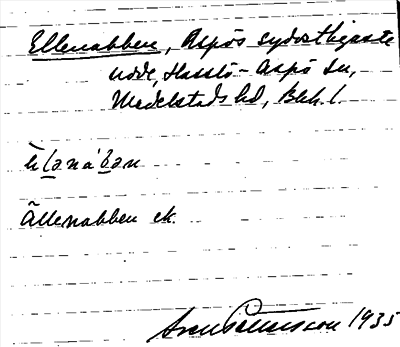 Ellenabben, Aspös sydostligaste
udde, Hasslö-Aspö sn,
Medelstads hd, Blek. l.
Ällenabben ek.
1935